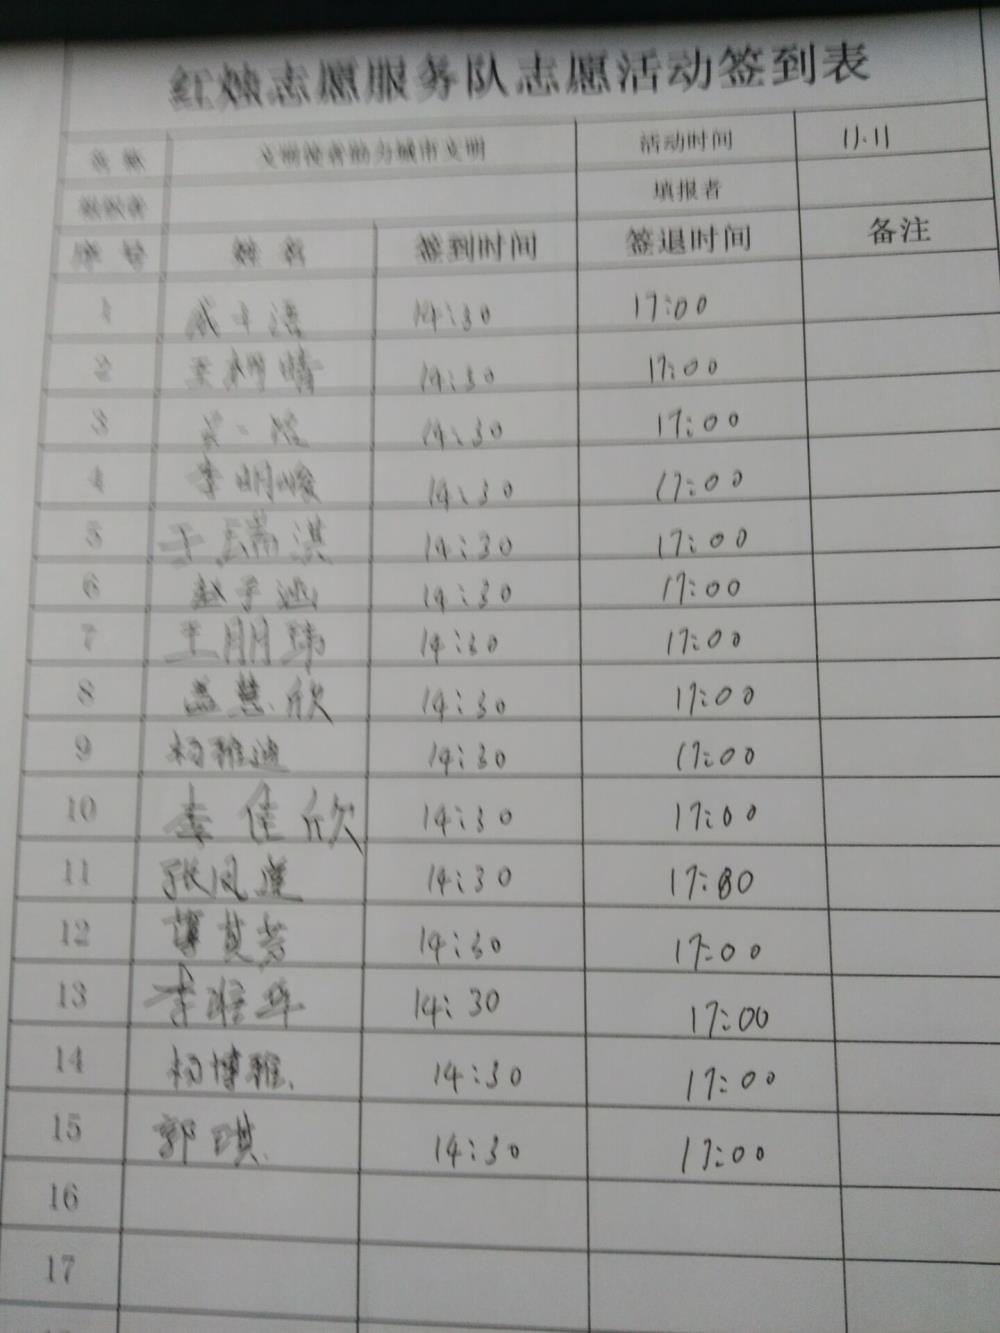 红烛志愿服务队志愿活动签到表
名称 文明使者助力城市文明 活动时间 11.11
填报者
序号 姓名 签到时间 签退时间 备注
1 14:30 17:00
2 14:30 17:00
3 14:30 17:00
4 李明峻 14:30 17:00
5 于瑞淇 14:30 17:00
6 赵子涵 14:30 17:00
7 王朋玮 14:30 17:00
8 孟慧欣 14:30 17:00
9 杨雅迪 14:30 17:00
10 李佳欣 14:30 17:00
11 张凤莲 14:30 17:00
12 14:30 17:00
13 14:30 17:00
14 杨博雅. 14:30 17:00
15 郭琪. 14:30 17:00
16
17